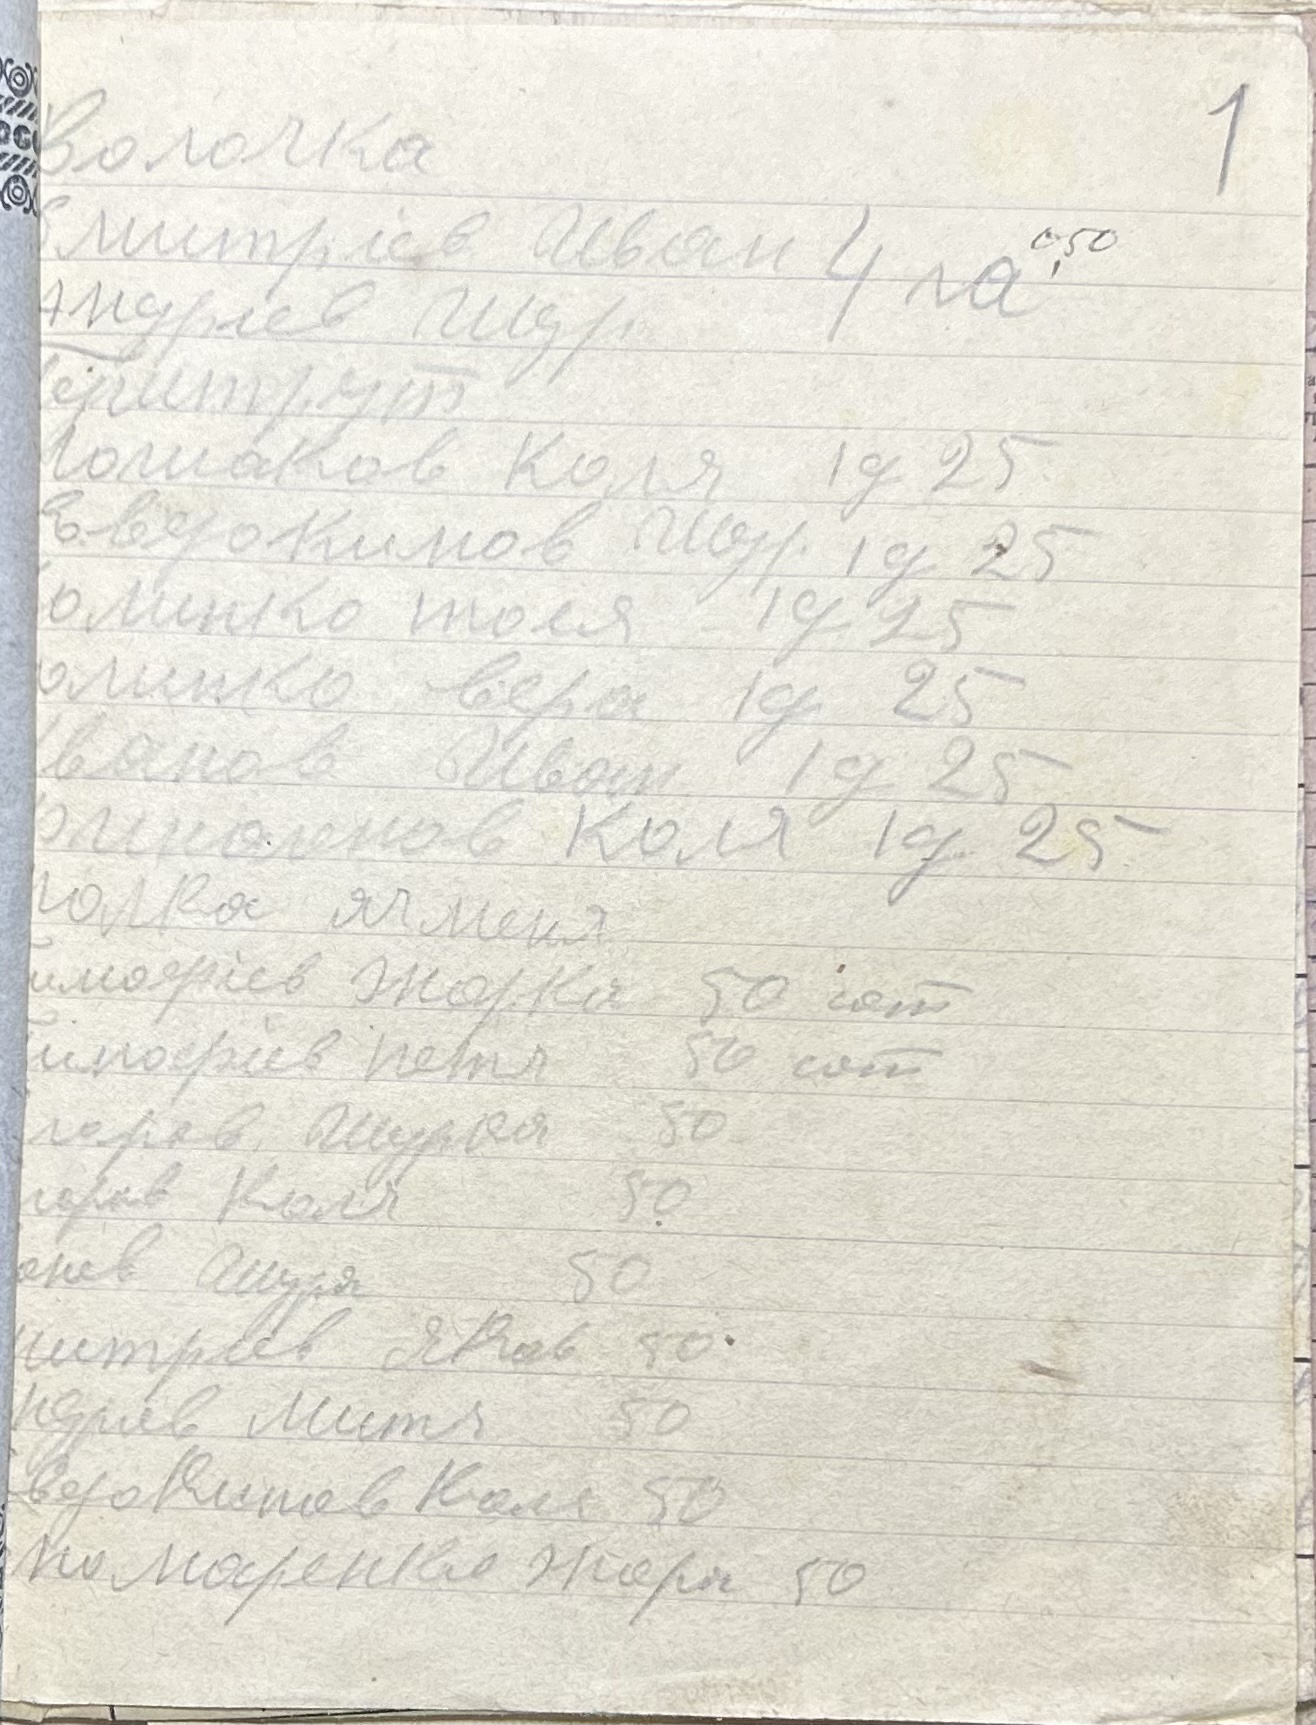 1
Волочка
Дмитріев Иван 4 га 0,50
Андріев Шур.
Лошаков Коля 1д 25
Евдокимов Шур. 1д 25
оминко толя 1д 25
оминко вера 1д 25
Иванов Иван 1д 25
Коля 1д 25
полка ячменя
имофіев жорка 50 сот
имофіев петя 50 сот
горов Шурка 50
горов Коля 50
Шуря 50
митріев Яков 50
ндріев Митя 50
вдокимов Коля 50
номаренко жора 50